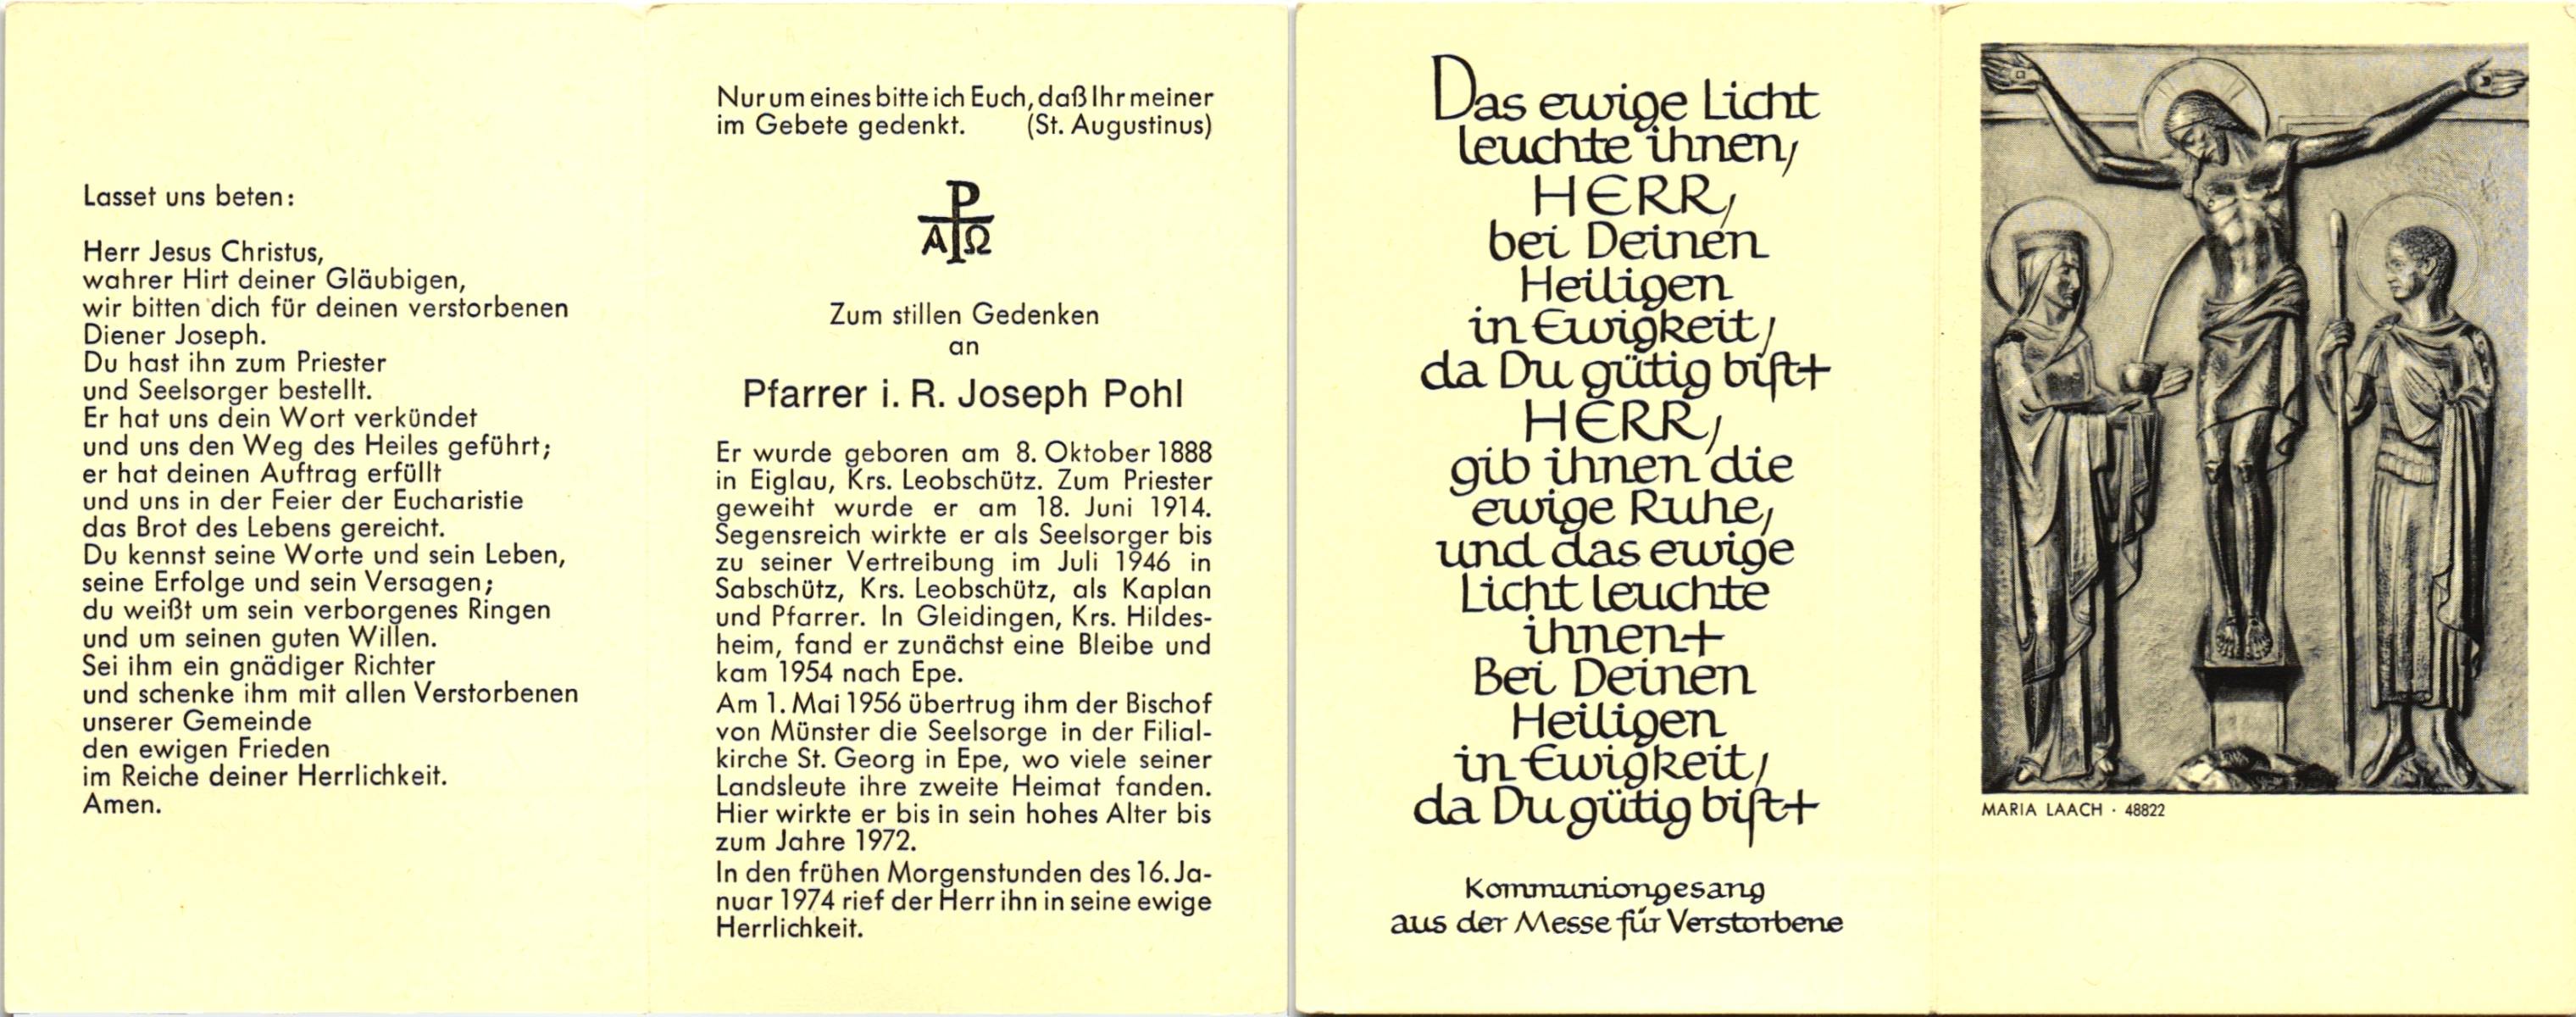 Lasset uns beten:
Herr Jesus Christus,
wahrer Hirt deiner Gläubigen,
wir bitten dich für deinen verstorbenen
Diener Joseph.
Du hast ihn zum Priester
und Seelsorger bestellt.
Er hat uns dein Wort verkündet
und uns den Weg des Heiles geführt;
er hat deinen Auftrag erfüllt
und uns in der Feier der Eucharistie
das Brot des Lebens gereicht.
Du kennst seine Worte und sein Leben,
seine Erfolge und sein Versagen;
du weißt um sein verborgenes Ringen
und um seinen guten Willen.
Sei ihm ein gnädiger Richter
und schenke ihm mit allen Verstorbenen
unserer Gemeinde
den ewigen Frieden
im Reiche deiner Herrlichkeit.
Amen.
Nur um eines bitte ich Euch, daß Ihr meiner
im Gebete gedenkt. (St. Augustinus)
P
Α Ω
Zum stillen Gedenken
an
Pfarrer i. R. Joseph Pohl
Er wurde geboren am 8. Oktober 1888
in Eiglau, Krs. Leobschütz. Zum Priester
geweiht wurde er am 18. Juni 1914.
Segensreich wirkte er als Seelsorger bis
zu seiner Vertreibung im Juli 1946 in
Sabschütz, Krs. Leobschütz, als Kaplan
und Pfarrer. In Gleidingen, Krs. Hildes-
heim, fand er zunächst eine Bleibe und
kam 1954 nach Epe.
Am 1. Mai 1956 übertrug ihm der Bischof
von Münster die Seelsorge in der Filial-
kirche St. Georg in Epe, wo viele seiner
Landsleute ihre zweite Heimat fanden.
Hier wirkte er bis in sein hohes Alter bis
zum Jahre 1972.
In den frühen Morgenstunden des 16. Ja-
nuar 1974 rief der Herr ihn in seine ewige
Herrlichkeit.
Das ewige Licht
leuchte ihnen,
HERR,
bei Deinen
Heiligen
in Ewigkeit,
da Du gütig bist+
HERR,
gib ihnen die
ewige Ruhe,
und das ewige
Licht leuchte
ihnen+
Bei Deinen
Heiligen
in Ewigkeit,
da Du gütig bist+
Kommuniongesang
aus der Messe für Verstorbene
MARIA LAACH · 48822